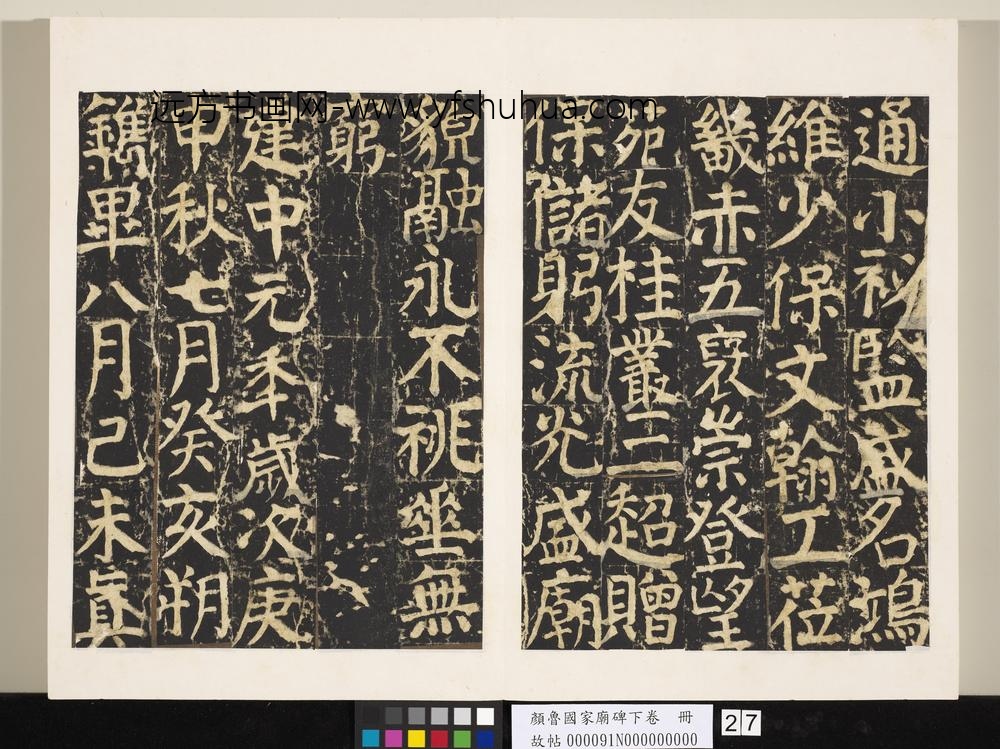 通小祕監盛名鴻
維少保文翰工莅
畿赤五襃崇登望
苑友桂叢三超贈
保儲躬流光盛廟
貌融永不祧垂無
躬
建中元年歲次庚
申秋七月癸亥朔
鐫畢八月己未真
远方书画网-www.yfshuhua.com
顏魯國家廟碑下卷 冊
故帖 000091N000000000
27